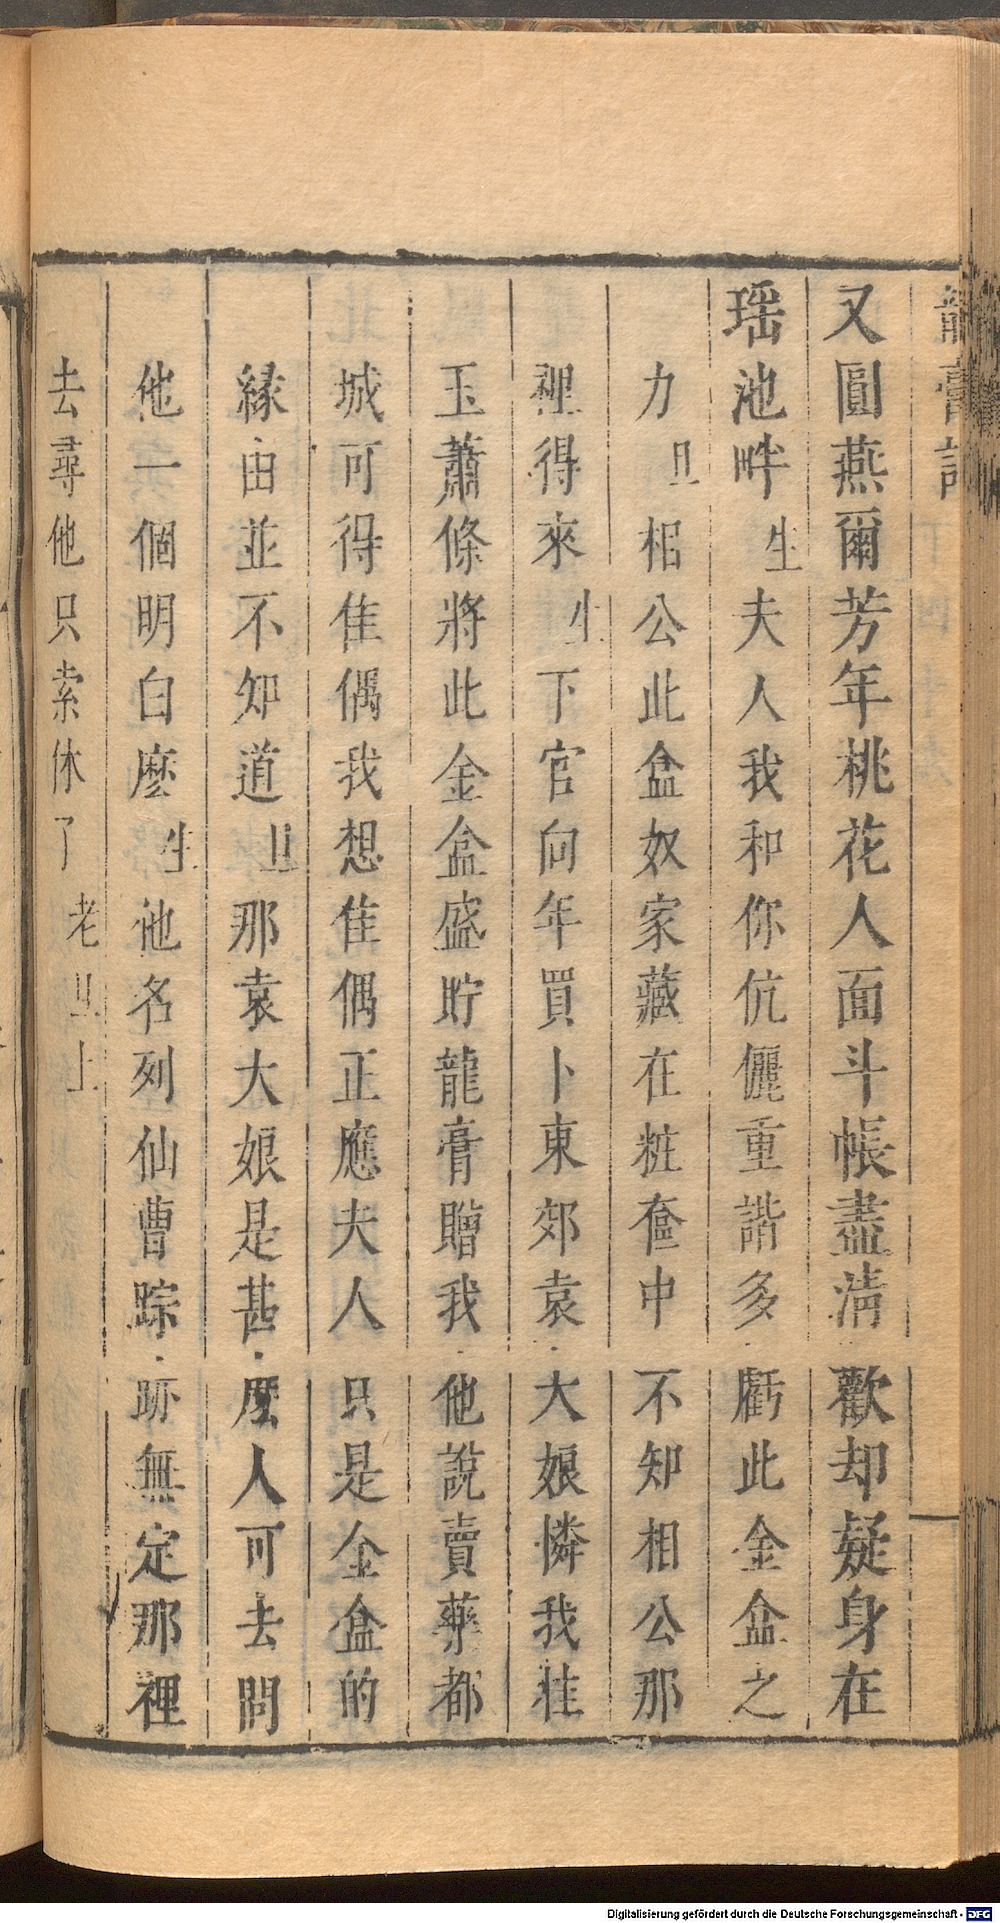 龍膏記
又圓燕爾芳年桃花人面斗帳盡淸歡却疑身在
瑶池畔生夫人我和你伉儷重諧多虧此金盒之
力旦相公此盒奴家藏在粧奩中不知相公那
裡得來生下官向年買卜東郊袁大娘憐我桂
玉蕭條將此金盒盛貯龍膏贈我他說賣藥都
城可得佳偶我想佳偶正應夫人只是金盒的
緣由並不知道旦那袁大娘是甚麽人可去問
他一個明白麽生他名列仙曹踪跡無定那裡
去尋他只索休了老旦上
Digitalisierung gefördert durch die Deutsche Forschungsgemeinschaft - DFG